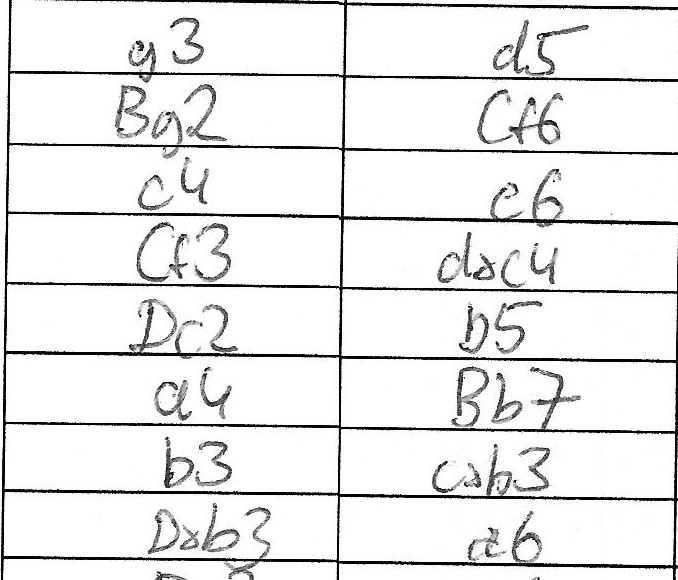 g3 d5
Bg2 Cf6
c4 e6
Cf3 dxc4
Dc2 b5
a4 Bb7
b3 cxb3
Dxb3 a6